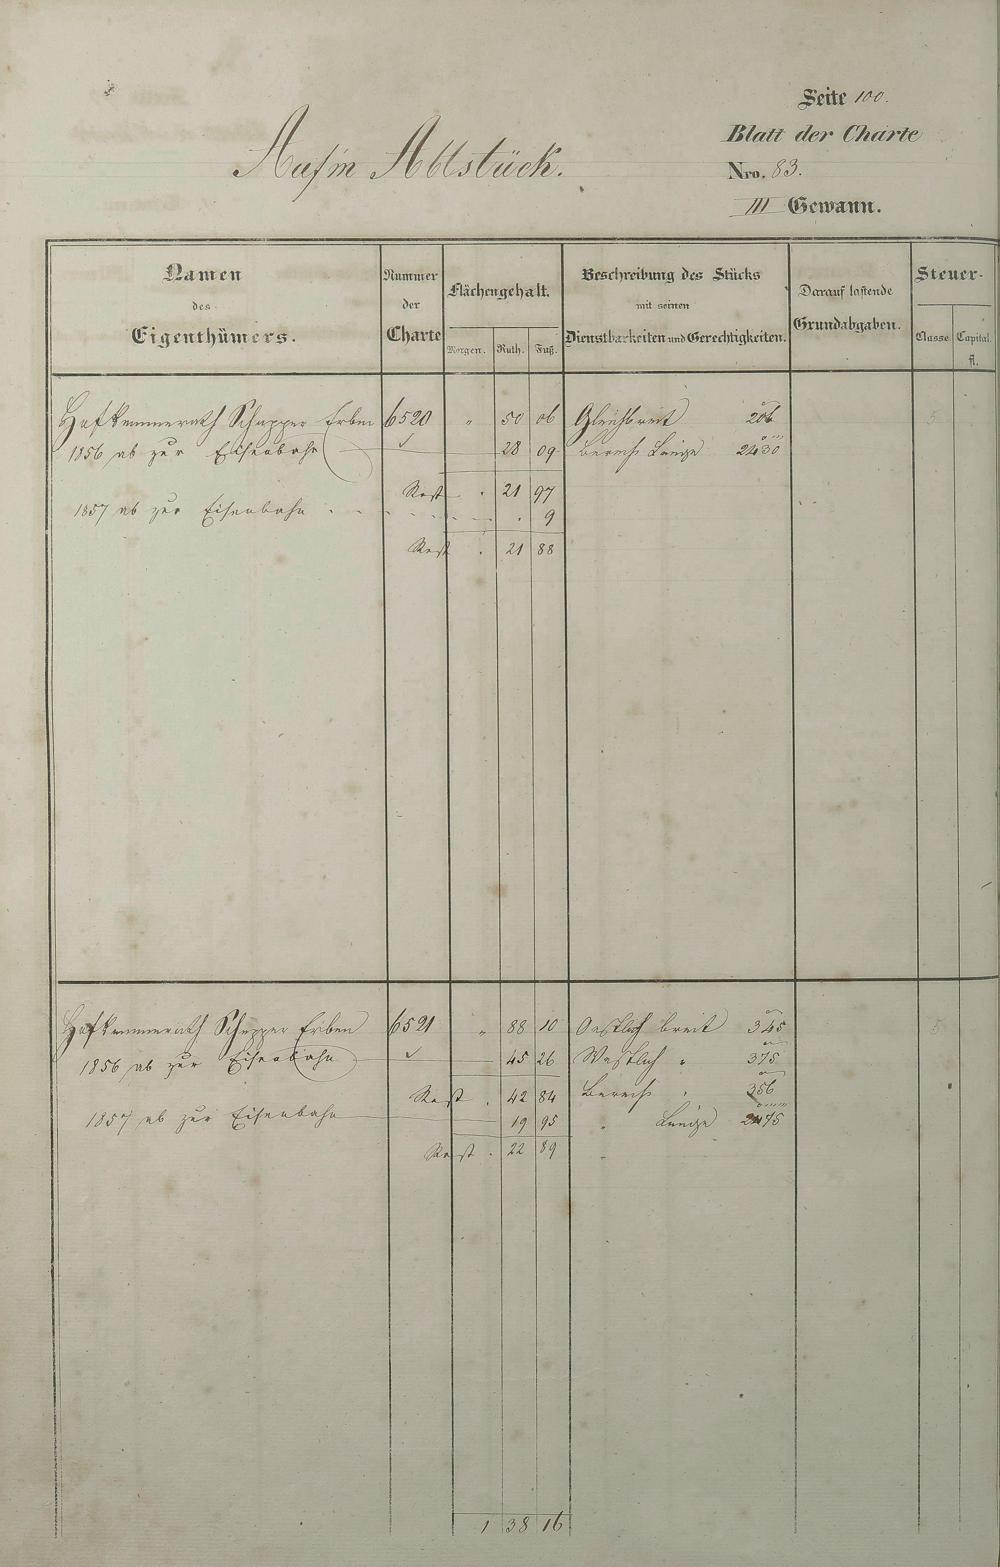 Seite 100.
Blatt der Charte
Auf'm Altstück.
Nro. 83.
III Gewann.
Namen des Eigenthümers.
Nummer der Charte
Flächengehalt.
Morgen. Ruth. Fuß.
Beschreibung des Stücks mit seinen Dienstbarkeiten und Gerechtigkeiten.
Darauf lastende Grundabgaben.
Steuer-
Classe. Capital. fl.
Hofkammerrath Schapper Erben 6520 " 50 06 Gleichbreit 206
1856 ab zur Eisenbahn 28 09 Länge 2430
Rest . 21 97
1857 ab zur Eisenbahn . 9
Rest . 21 88
Hofkammerrath Schapper Erben 6521 " 88 10 Oestlich breit 345
1856 ab zur Eisenbahn 45 26 Westlich " 375
Rest . 42 84 " 356
1857 ab zur Eisenbahn 19 95 " Länge 2475
Rest . 22 89
1 38 16